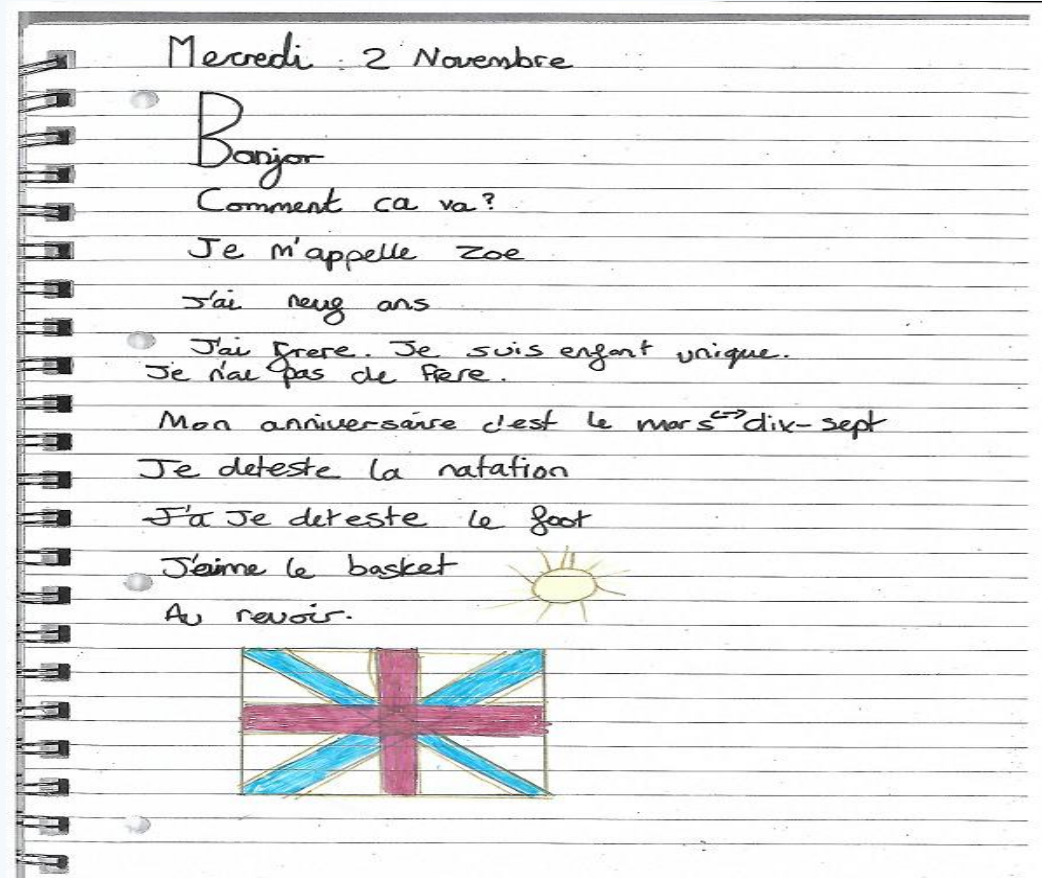 Mecredi : 2 Novembre
Bonjor
Comment ca va?
Je m'appelle Zoe
J'ai neuf ans
J'ai frere. Je suis enfant unique.
Je n'ai pas de frere.
Mon anniversaire c'est le mars ↔ dix-sept
Je deteste la natation
J'a Je deteste le foot
J'aime le basket
Au revoir.